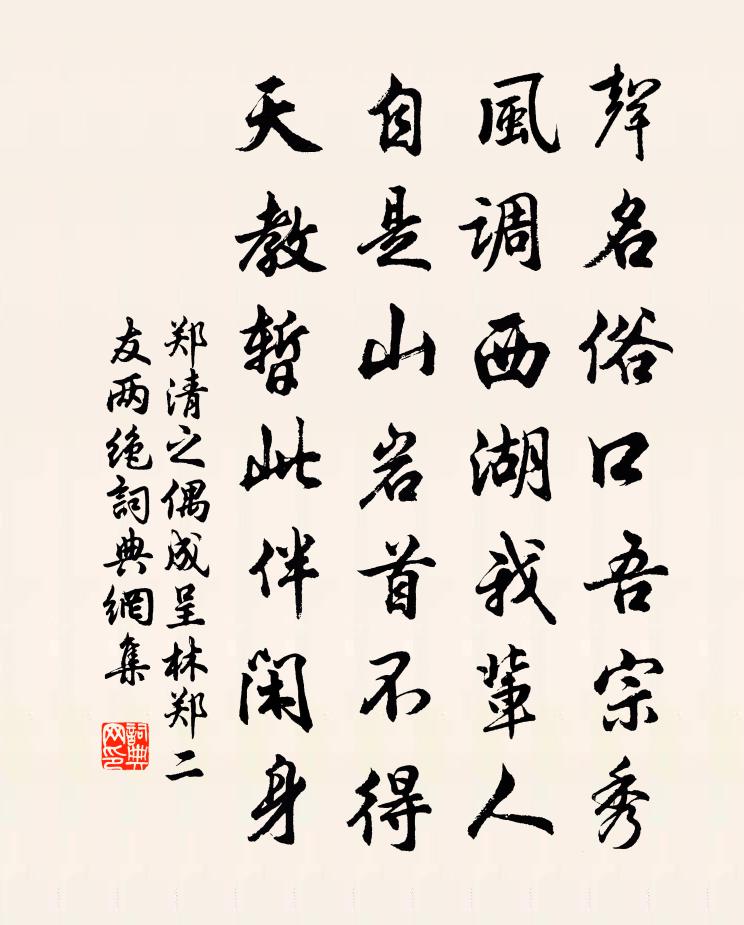 聲名俗口吾宗秀
風调西湖我輩人
自是山岩首不得
天教暫此伴闲身
郑清之偶成呈林郑二
友两绝詞典網集